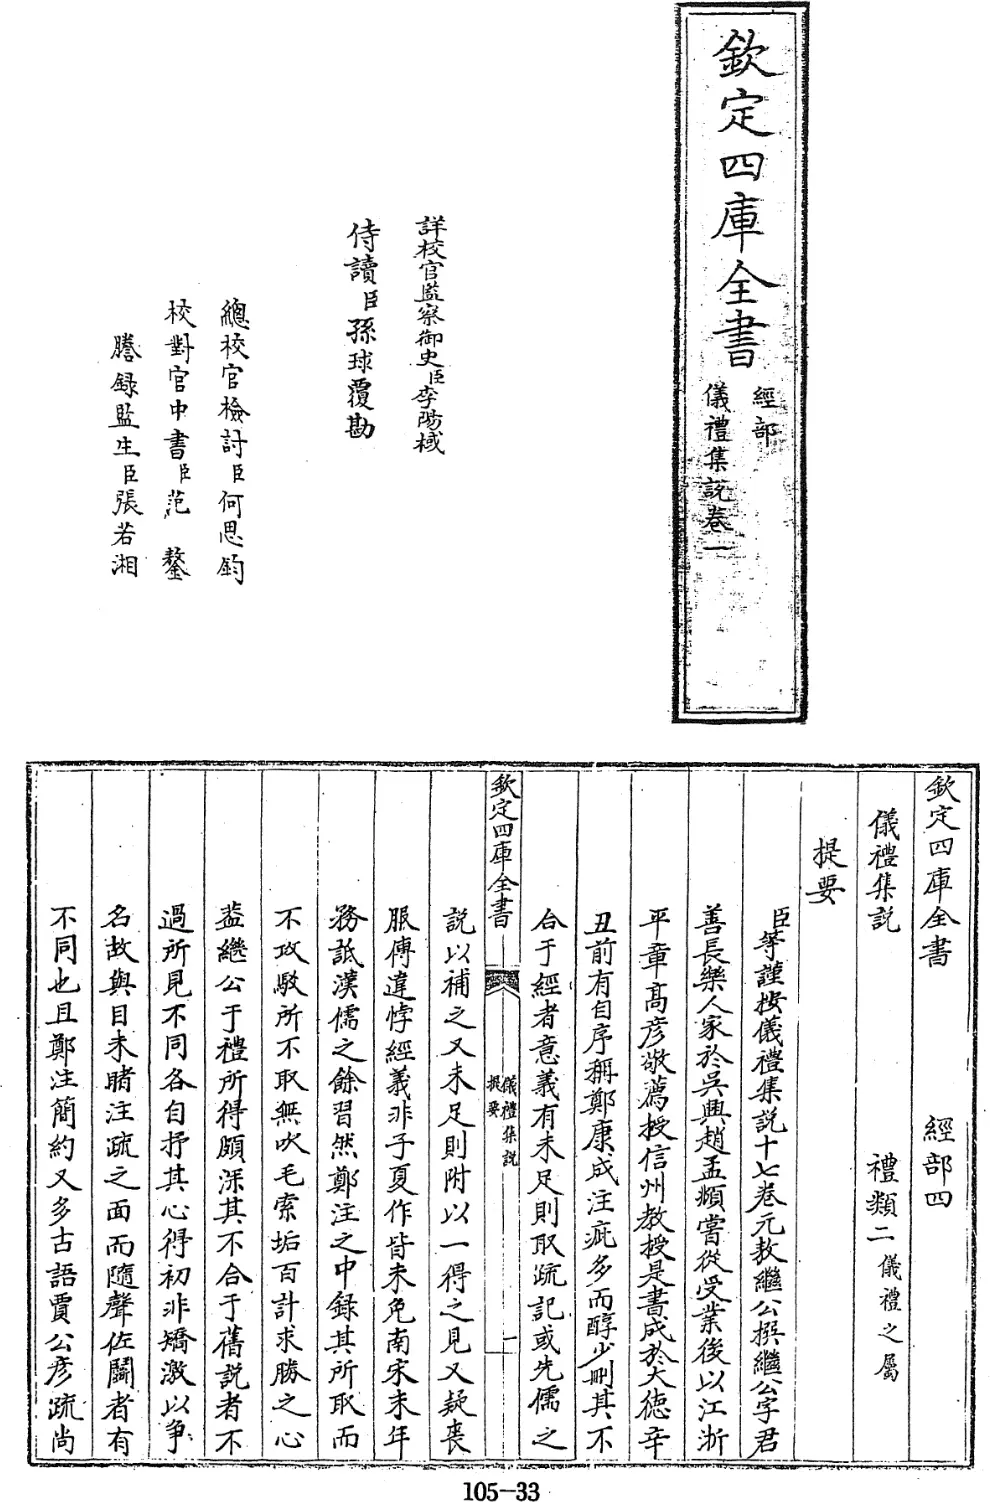 欽定四庫全書
經部
儀禮集説卷一
詳校官監察御史臣李陽棫
侍讀臣孫球覆勘
總校官檢討臣何思鈞
校對官中書臣范鏊
謄錄監生臣張若湘
欽定四庫全書 經部四
儀禮集説 禮類二儀禮之屬
提要
臣等謹按儀禮集説十七卷元敖繼公撰繼公字君
善長樂人家於吳興趙孟頫嘗從受業後以江浙
平章高彦敬薦授信州教授是書成於大德辛
丑前有自序稱鄭康成注疵多而醇少刪其不
合于經者意義有未足則取疏記或先儒之
欽定四庫全書
儀禮集説
提要
一
說以補之又未足則附以一得之見又疑喪
服傳違悖經義非子夏作皆未免南宋末年
務詆漢儒之餘習然鄭注之中錄其所取而
不攻駁所不取無吹毛索垢百計求勝之心
葢繼公于禮所得頗深其不合于舊說者不
過所見不同各自抒其心得初非矯激以爭
名故與目未睹注疏之面而隨聲佐鬭者有
不同也且鄭注簡約又多古語賈公彦疏尚
105-33